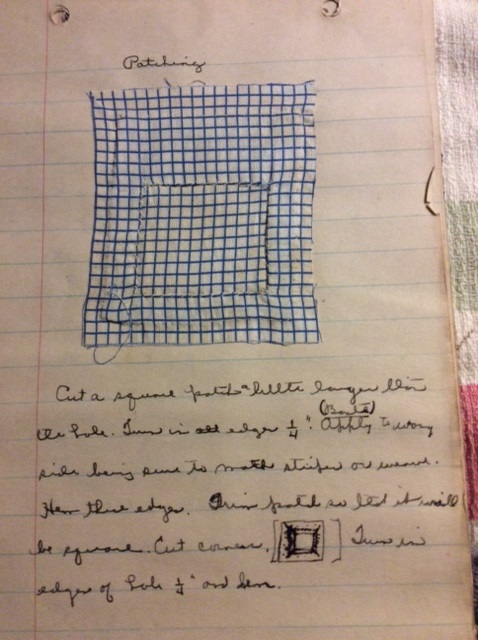 Patching
Cut a square patch a little larger than
the hole. Turn in all edges 1/4". (Baste) Apply to wrong
side being sure to match stripes or weave.
Hem these edges. Trim patch so that it will
be square. Cut corners. [ ] Turn in
edges of hole 1/4" and hem.